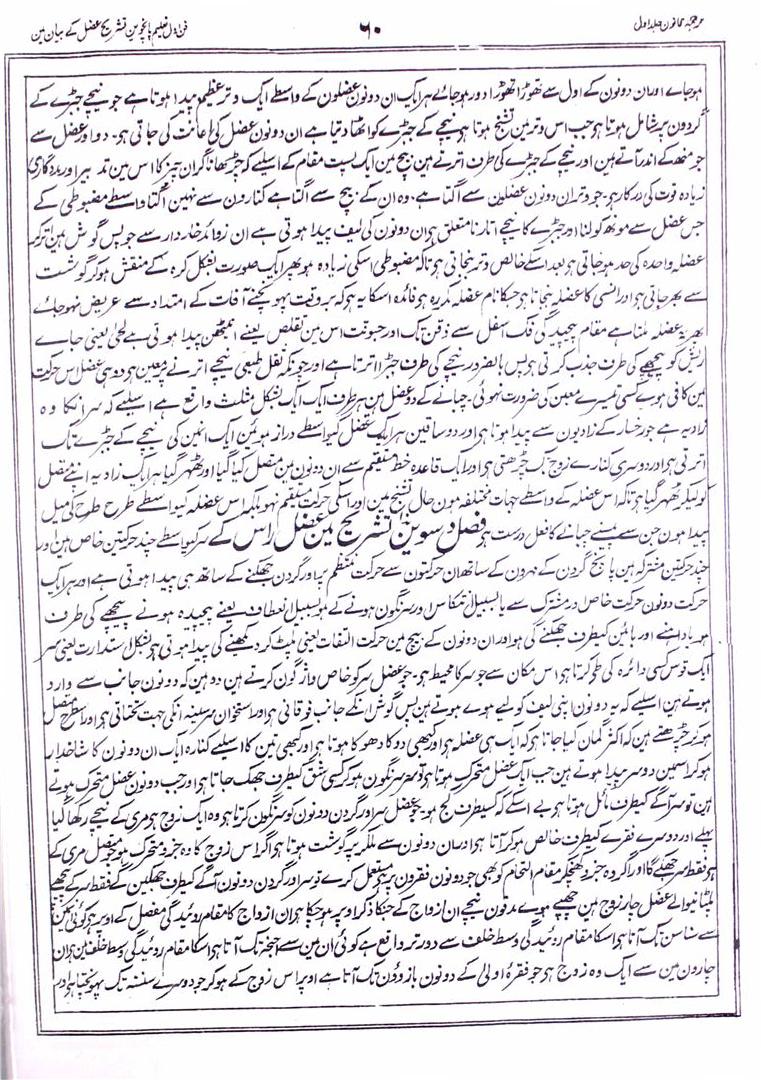 ترجمہ قانون جلد اول
۶۰
فن اول تعلیم پانچوین تشریح عضل کے بیان مین
ہوجاے اور ان دونون کے اول سے تھوڑا تھوڑا دور ہوجاے ہر ایک ان دونون عضلون کے واسطے ایک وتر عظیم پیدا ہوتا ہے جو نیچے جبڑے کے
گردون پر شامل ہوتا ہو جب اس وتر مین تشنج ہوتا ہو نیچے کے جبڑے کو اٹھا دیتا ہے ان دونون عضل کی اعانت کی جاتی ہو۔ دو اور عضل سے
جو منھ کے اندر آتے ہین اور نیچے کے جبڑے کی طرف اترتے ہین بیچ مین ایک پست مقام کے اسلیے کہ چڑھانا گران چیز کا اس مین تدبیر اور مددگاری
زیادہ قوت کی درکار ہو۔ جو وتر ان دونون عضلون سے اگتا ہے۔ وہ ان کے بیچ سے اگتا ہے کنارون سے نہین اگتا واسطے مضبوطی کے
جس عضل سے مونھ کو کھولنا اور جبڑے کا نیچے اتارنا متعلق ہو ان دونون کی لیف پیدا ہوتی ہے ان زوائد خاردار سے جو پس گوش ہین اتر کر
عضلہ واحدہ کی حد ہوجاتی ہو بعد اسکے خالص وتر بنجاتی ہو تاکہ مضبوطی اسکی زیادہ ہو پھر ایک صورت بشکل کرہ کے منفش ہوکر گوشت
سے بھر جاتی ہو اور اسی کا عضلہ بنجاتا ہو جسکا نام عضلہ مکررہ ہو فائدہ اسکا یہ ہو کہ بروقت پہونچنے آفات کے امتداد سے عریض نہوجاے
پھر یہ عضلہ ملتا ہے مقام پیچیدگی فک اسفل سے ذقن تک اور جسوقت اس مین تقلص یعنے اینٹھن پیدا ہوتی ہے لحیٰ یعنی جاے
ریش کو پیچھے کی طرف جذب کرتی ہو پس بالضرور نیچے کی طرف جبڑا اترتا ہے اور چونکہ ثقل طبعی نیچے اترنے پر معین ہو دو ہی عضل اس حرکت
مین کافی ہوے کسی تیسرے معین کی ضرورت نہوئی۔ چبانے کے دو عضل ہین ہر طرف ایک ایک بشکل مثلث واقع ہے اسلیے کہ سر انکا وہ
زاویہ ہے جو رخسار کے زاویون سے پیدا ہوتا ہی اور دو ساقین ہر ایک عضل کیواسطے دراز ہوئین ایک ائین کی نیچے کے جبڑے تک
اترتی ہو اور دوسری کنارے زوج تک چڑھتی ہو اور ایک قاعدہ خط مستقیم سے ان دونون مین متصل کیا گیا اور ٹھہر گیا ہر ایک زاویہ اپنے متصل
کو لیکر ٹھہر گیا ہو تاکہ اس عضلہ کے واسطے جہات مختلفہ ہون حال تشنج مین اور اسکی حرکت مستقیم نہو بلکہ اس عضلہ کیواسطے طرح طرح کی میل
پیدا ہون جن سے پیسنے چبانے کا فعل درست ہو فصل دسوین تشریح مین عضل راس کے سر کیواسطے چند حرکتین خاص ہین اور
چند حرکتین مشترک ہین پانچ گردن کے مہرون کے ساتھ ان حرکتون سے حرکت منتظم سر اور گردن جھکنے کے ساتھ ہی پیدا ہوتی ہے اور ہر ایک
حرکت دونون حرکت خاص اور مشترک سے یا بسبیل نتکاس اور سرنگون ہونے کے ہو یا بسبیل انعطاف یعنے پیچیدہ ہونے پیچھے کی طرف
ہو یا داہنے اور بائین کیطرف جھکنے کی ہو اور ان دونون کے بیچ مین حرکت التفات یعنی پلٹ کر دیکھنے کی پیدا ہوتی ہو بشکل استدارت یعنی سر
ایک قوس کسی دائرہ کی طی کرتا ہو اس مکان سے جو سر کا محیط ہو۔ جو عضل سر کو خاص واژگون کرتے ہین دو ہین کہ دونون جانب سے وارد
ہوتے ہین اسلیے کہ یہ دونون اپنی لیف کو لیے ہوے ہوتے ہین پس گوش انکے جانب فوقانی ہو اور استخوان سر سینہ انکی جہت تحتانی ہو اور اسطرح متصل
ہوکر چڑھتے ہین کہ اکثر گمان کیا جاتا ہو کہ ایک ہی عضلہ ہو اور کبھی دو کا دھوکا ہوتا ہو اور کبھی تین کا اسلیے کنارہ ایک ان دونون کا شاخدار
ہوکر اسمین دو سر پیدا ہوتے ہین جب ایک عضل متحرک ہوتا ہو تو سر سرنگون ہوکر کسی شق کیطرف جھک جاتا ہو اور جب دونون عضل متحرک ہوتے
ہین تو سر آگے کیطرف مائل ہوتا ہو بے اسکے کہ کسیطرف کج ہو جو عضل سر اور گردن دونون کو سرنگون کرتا ہو وہ ایک زوج ہو مری کے نیچے رکھا گیا
پہلے اور دوسرے فقرے کیطرف خالص ہوکر آتا ہو اور ان دونون سے ملکر پر گوشت ہوتا ہو اگر اس زوج کا وہ جزو متحرک ہو جو متصل مری کے
ہو فقط سر جھکے گا اور اگر وہ جزو دھچکہ مقام التحام کو بھی جو دونون فقرون پر ہو منفعل کرے تو سر اور گردن دونون آگے کیطرف جھکین گے فقط سر کے پیچھے
پلٹانیوالے عضل چار زوج ہین چھپے ہوے مدفون نیچے ان ازواج کے جنکا ذکر اوپر ہوچکا ہو ان ازواج کا مقام روئیدگی مفصل کے اوپر ہو کوئی ان مین
سے سناسن تک آتا ہو اسکا مقام روئیدگی وسط خلف سے دور تر واقع ہے کوئی ان مین سے آجنحہ تک آتا ہو اسکا مقام روئیدگی وسط خلف ہین ہو ان
چارون مین سے ایک وہ زوج ہو جو فقرۂ اولی کے دونون بازوون تک آتا ہے اوپر اس زوج کے ہوکر جو دوسرے سنسنہ تک پہونچتا ہو اور